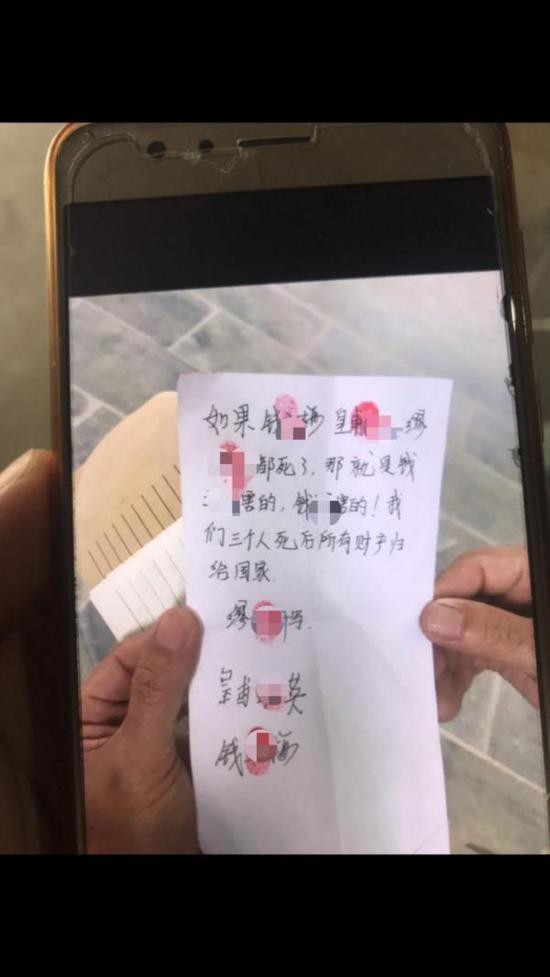 如果钱梅皇甫缪
都死了，那就是钱
害的，钱害的！我
们三个人死后所有财产归
给国家.
缪写.
皇甫英
钱梅